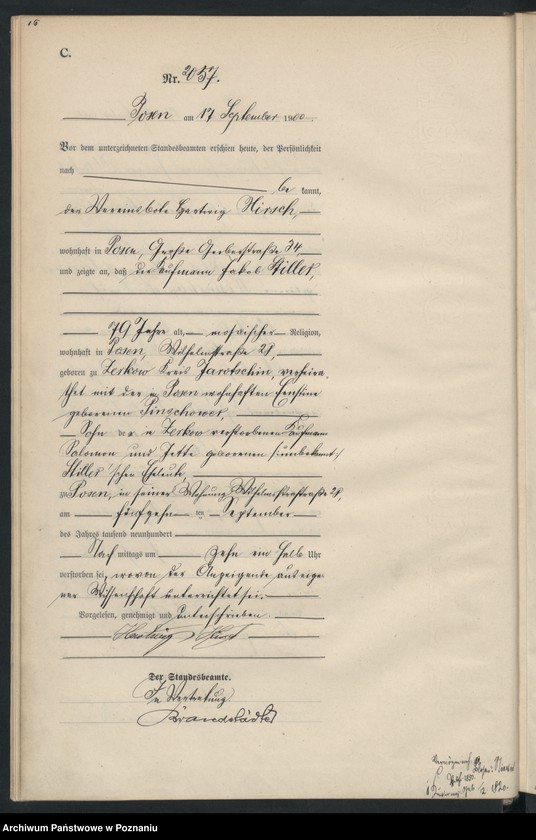 16
C.
Nr. 2057.
Posen am 17 September 1900.
Vor dem unterzeichneten Standesbeamten erschien heute, der Persönlichkeit
nach
be kannt,
der Vereinsbote Hartwig Hirsch,
wohnhaft in Posen, Große Gerberstraße 34,
und zeigte an, daß der Kaufmann Jakob Stiller,
79 Jahre alt, mosaischer Religion,
wohnhaft in Posen, Wilhelmstraße 28,
geboren zu Zerkow Kreis Jarotschin, verheira-
thet mit der in Posen wohnhaften Ernstine
geborenen Pinschower,
Sohn der in Zerkow verstorbenen Kaufmann
Salomon und Jette geborenen (unbekannt)
Stiller'schen Eheleute,
zu Posen, in seiner Wohnung Wilhelmstraße 28,
am fünfzehn ten September
des Jahres tausend neunhundert
Nach mittags um zehn ein halb Uhr
verstorben sei, wovon der Anzeigende aus eige-
ner Wissenschaft unterrichtet sei.
Vorgelesen, genehmigt und unterschrieben
Hartwig Hirsch
Der Standesbeamte.
In Vertretung
Brandstädter
Archiwum Państwowe w Poznaniu